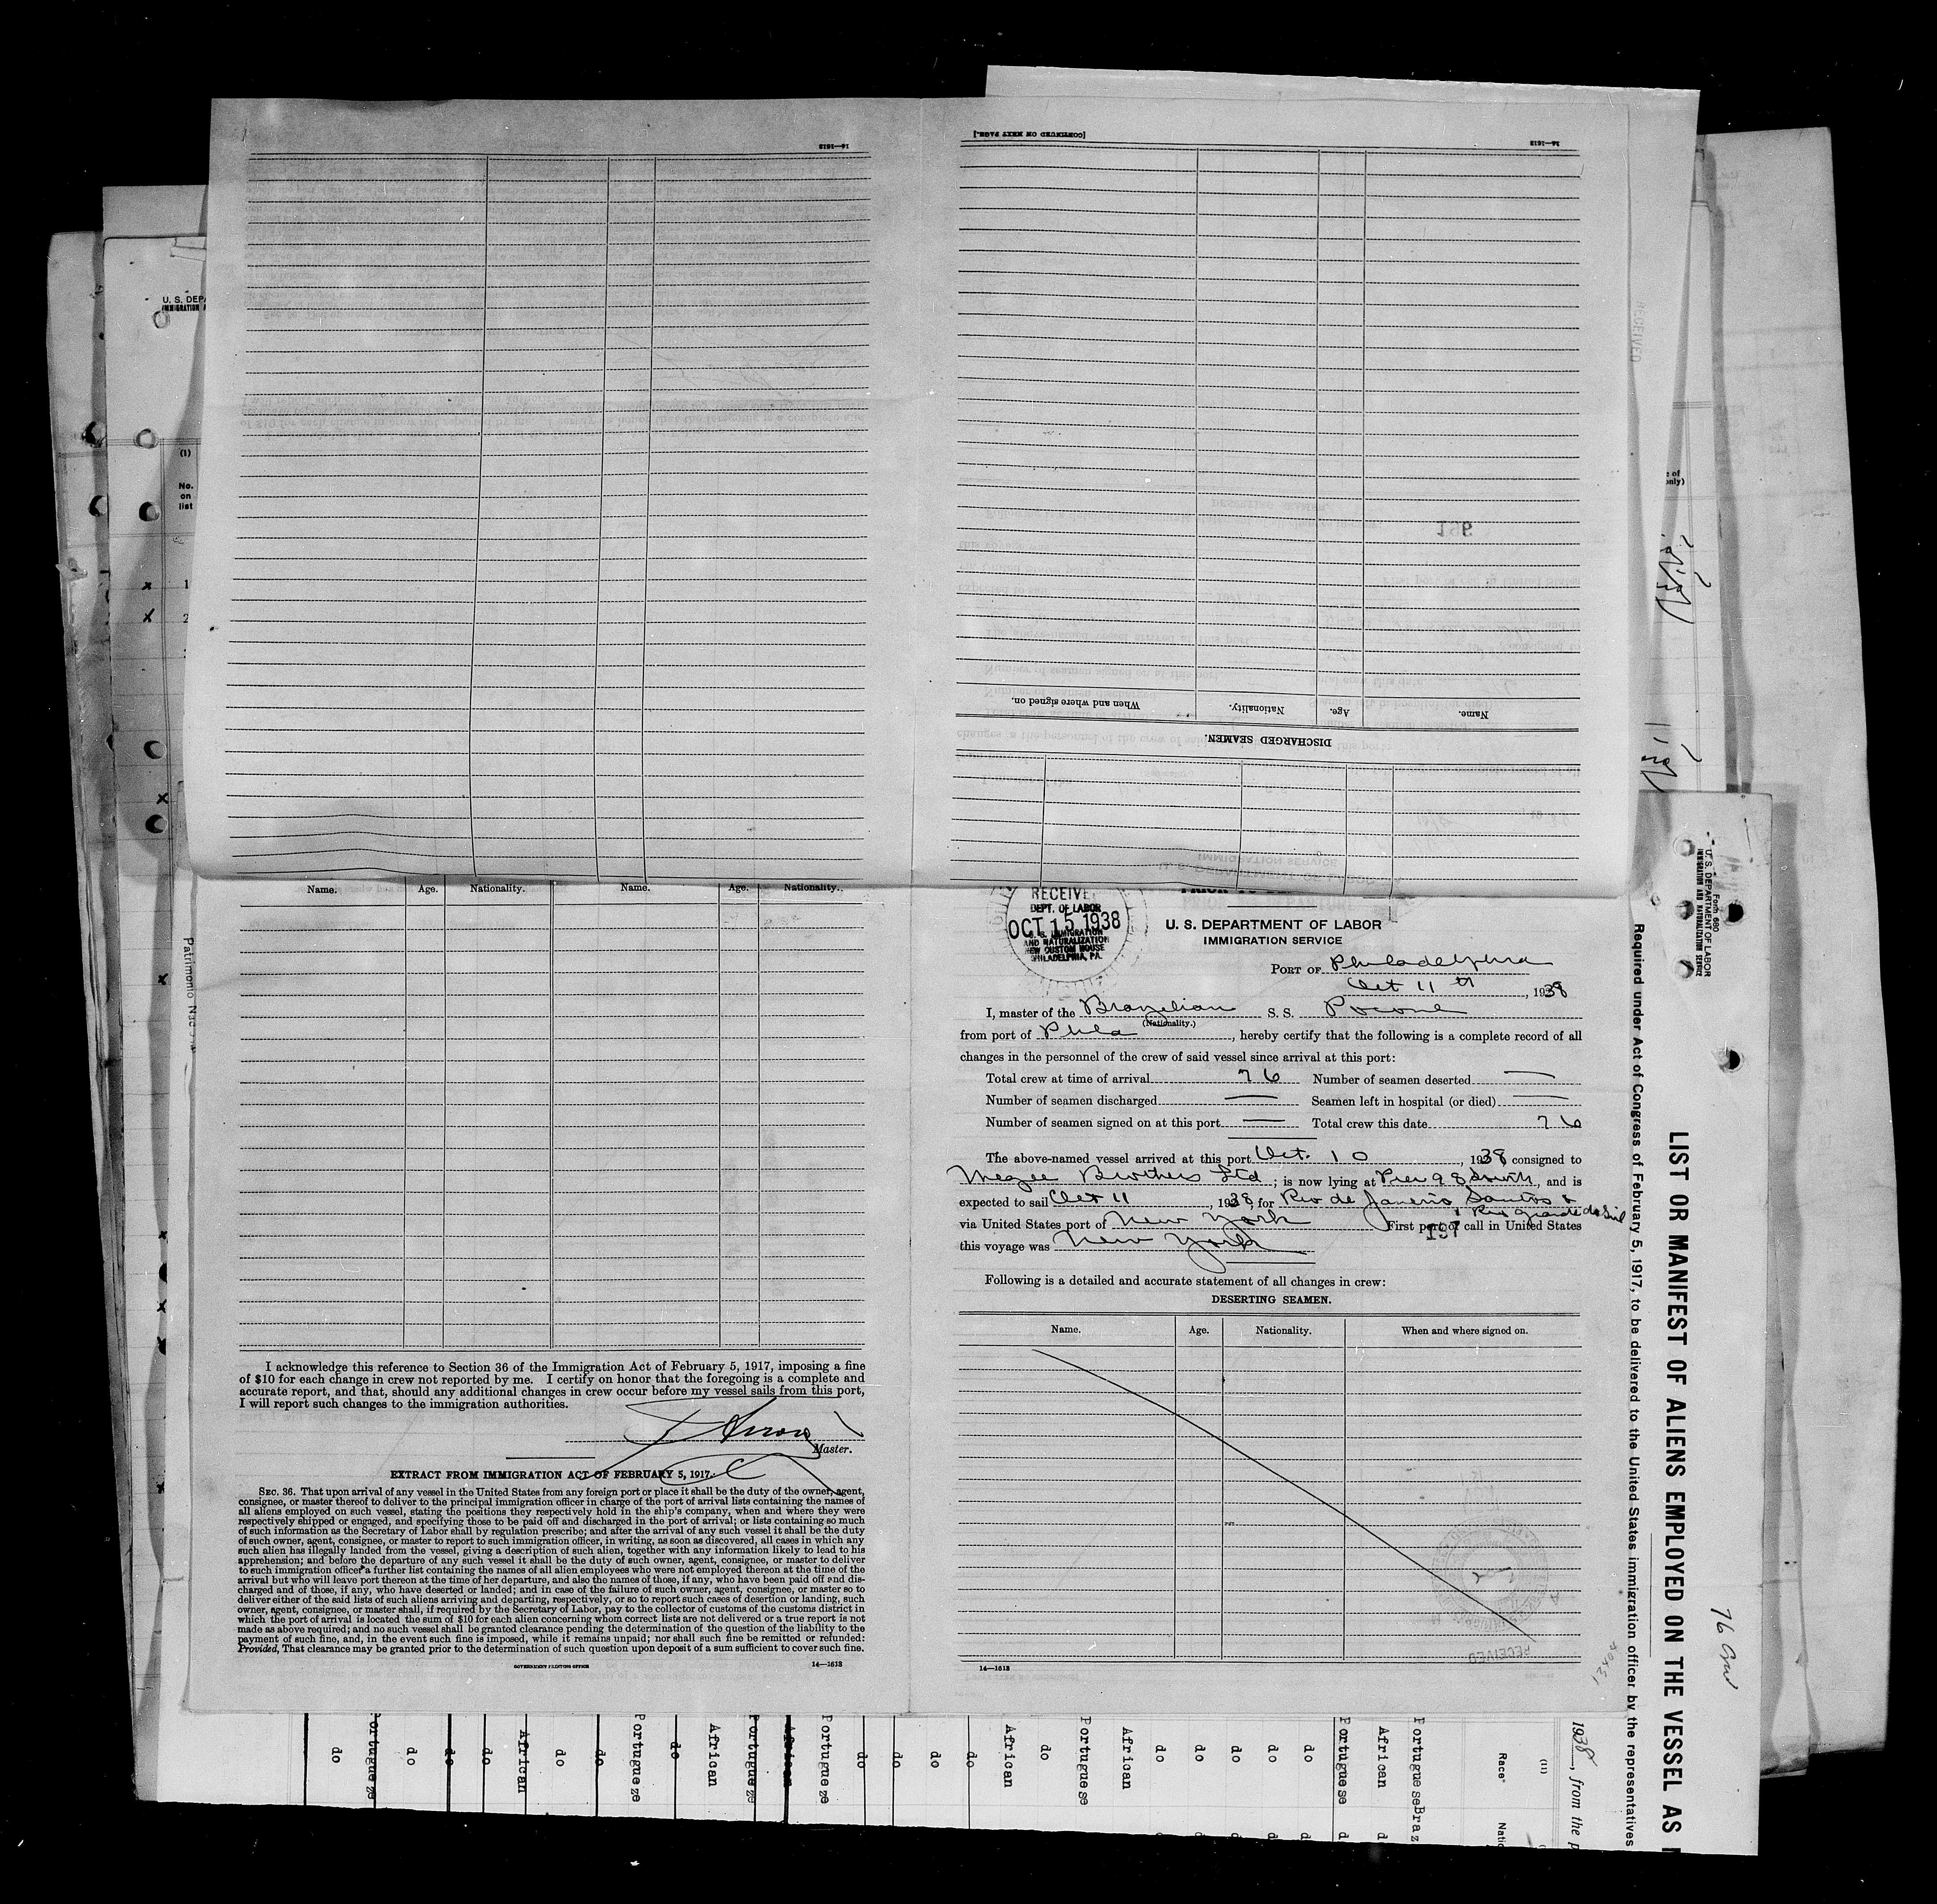 [CONTINUED ON NEXT PAGE.]
14—1613
14—1613
Name.
Age.
Nationality.
When and where signed on.
DISCHARGED SEAMEN.
U. S. DEPA
IMMIGRATION
(1)
No.
on
list
1
2
RECEIVED
Name. Age. Nationality. Name. Age. Nationality.
I acknowledge this reference to Section 36 of the Immigration Act of February 5, 1917, imposing a fine
of $10 for each change in crew not reported by me. I certify on honor that the foregoing is a complete and
accurate report, and that, should any additional changes in crew occur before my vessel sails from this port,
I will report such changes to the immigration authorities.
Master.
EXTRACT FROM IMMIGRATION ACT OF FEBRUARY 5, 1917.
SEC. 36. That upon arrival of any vessel in the United States from any foreign port or place it shall be the duty of the owner, agent,
consignee, or master thereof to deliver to the principal immigration officer in charge of the port of arrival lists containing the names of
all aliens employed on such vessel, stating the positions they respectively hold in the ship's company, when and where they were
respectively shipped or engaged, and specifying those to be paid off and discharged in the port of arrival; or lists containing so much
of such information as the Secretary of Labor shall by regulation prescribe; and after the arrival of any such vessel it shall be the duty
of such owner, agent, consignee, or master to report to such immigration officer, in writing, as soon as discovered, all cases in which any
such alien has illegally landed from the vessel, giving a description of such alien, together with any information likely to lead to his
apprehension; and before the departure of any such vessel it shall be the duty of such owner, agent, consignee, or master to deliver
to such immigration officer a further list containing the names of all alien employees who were not employed thereon at the time of the
arrival but who will leave port thereon at the time of her departure, and also the names of those, if any, who have been paid off and dis-
charged and of those, if any, who have deserted or landed; and in case of the failure of such owner, agent, consignee, or master so to
deliver either of the said lists of such aliens arriving and departing, respectively, or so to report such cases of desertion or landing, such
owner, agent, consignee, or master shall, if required by the Secretary of Labor, pay to the collector of customs of the customs district in
which the port of arrival is located the sum of $10 for each alien concerning whom correct lists are not delivered or a true report is not
made as above required; and no such vessel shall be granted clearance pending the determination of the question of the liability to the
payment of such fine, and, in the event such fine is imposed, while it remains unpaid; nor shall such fine be remitted or refunded:
Provided, That clearance may be granted prior to the determination of such question upon deposit of a sum sufficient to cover such fine.
GOVERNMENT PRINTING OFFICE 14—1613
RECEIVE
DEPT. OF LABOR
OCT 15 1938
U. S. IMMIGRATION
AND NATURALIZATION
NEW CUSTOM HOUSE
PHILADELPHIA, PA.
U. S. DEPARTMENT OF LABOR
IMMIGRATION SERVICE
PORT OF Philadelphia
Oct 11 th, 1938
I, master of the Brazilian S. S. Pocone
(Nationality.)
from port of Phila, hereby certify that the following is a complete record of all
changes in the personnel of the crew of said vessel since arrival at this port:
Total crew at time of arrival 76 Number of seamen deserted —
Number of seamen discharged — Seamen left in hospital (or died) —
Number of seamen signed on at this port — Total crew this date 76
The above-named vessel arrived at this port Oct. 10, 1938 consigned to
Megee Brothers Ltd; is now lying at Pier 98 South, and is
expected to sail Oct 11, 1938, for Rio de Janeiro Santos &
Rio Grande do Sul
via United States port of New York First port of call in United States
197
this voyage was New York
Following is a detailed and accurate statement of all changes in crew:
DESERTING SEAMEN.
Name. Age. Nationality. When and where signed on.
RECEIVED
14—1613
Form 680
U. S. DEPARTMENT OF LABOR
IMMIGRATION AND NATURALIZATION SERVICE
LIST OR MANIFEST OF ALIENS EMPLOYED ON THE VESSEL AS
Required under Act of Congress of February 5, 1917, to be delivered to the United States immigration officer by the representatives
76 Crew
1938, from the P
(11)
Race
Natio
Portuguese Braz
African
Portuguese
do
do
do
do
do
African
Portuguese
do
African
do
do
do
do
Portuguese
African
Portuguese
African
do
Portuguese
do
do
African
do
do
do
Portuguese
do